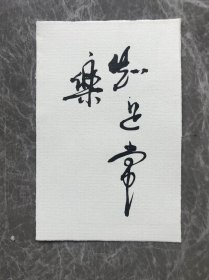 知足常
樂